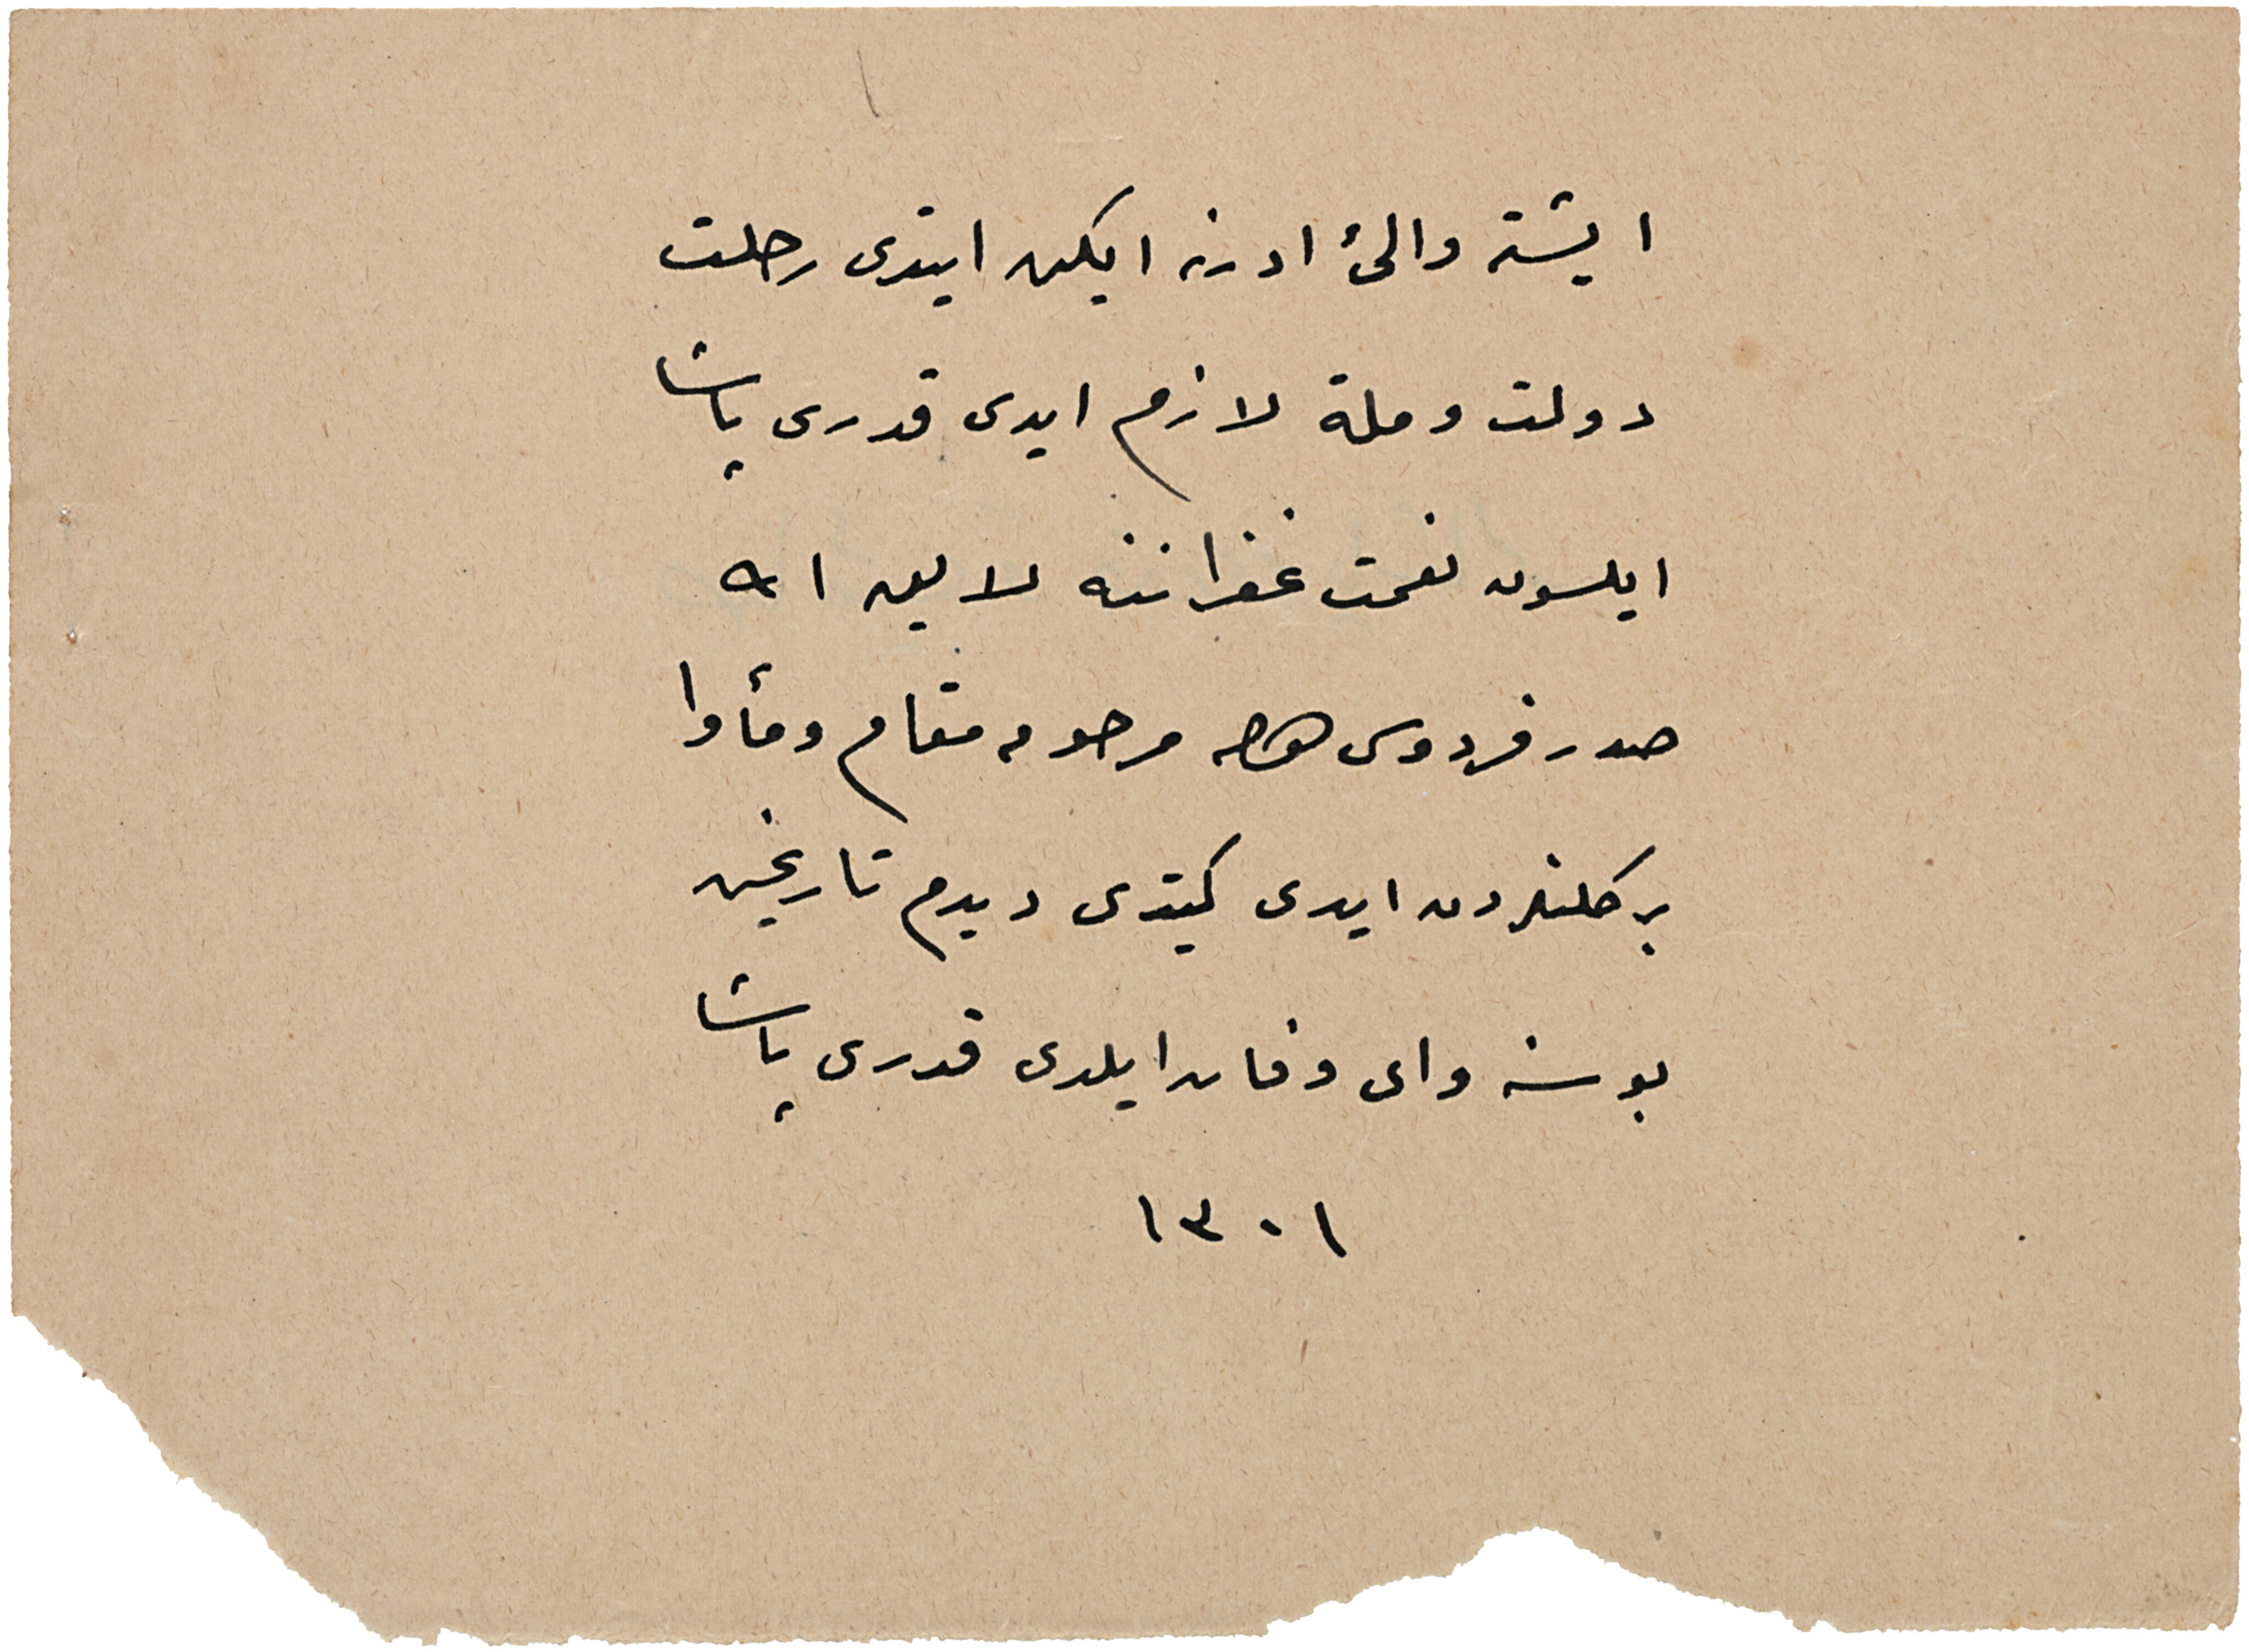 ایشته والئ ادرنه ایکن ایتدی رحلت
دولت و ملة لازم ایدی قدری پاشا
ایلسون نعمت غفراننه لایق الله
صدر فردوس اوله مرحومه مقام و مأوا
بر کلنلردن ایدی کیتدی دیدم تاریخن
بو سنه وای وفات ایلدی قدری پاشا
١٣٠١